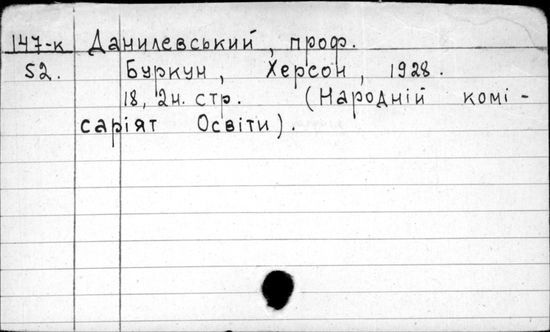 147-к Данилевський, проф.
52. Буркун, Херсон, 1928.
18, 2н. стр. (Народній комі-
саріят Освіти).